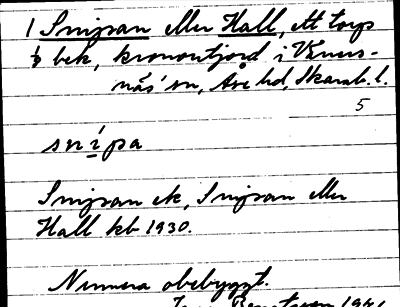 1 Snipan eller Hall, ett torp
å bek, kronoutjord i Väners-
näs' sn, Åse hd, Skarab. l.
5
snipa
Snipan ek, Snipan eller
Hall kb 1930.
Numera obebyggt.